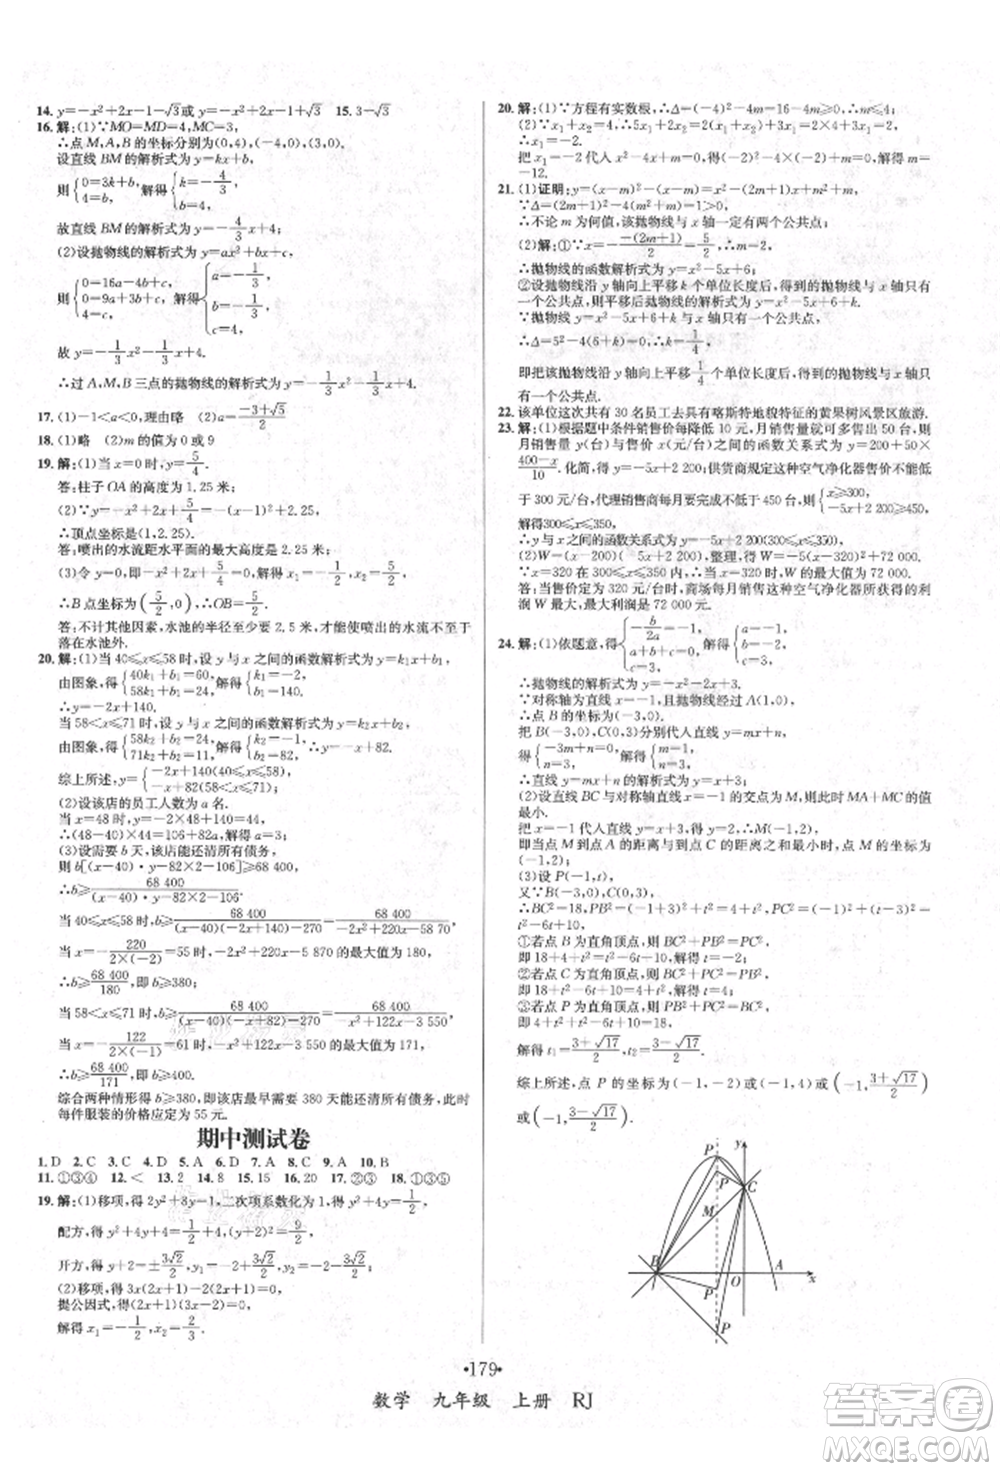 14. y=-x²+2x-1-√3或y=-x²+2x-1+√3 15. 3-√3
16. 解:(1)∵MO=MD=4,MC=3,
∴点M,A,B的坐标分别为(0,4),(-4,0),(3,0).
设直线BM的解析式为y=kx+b,
则{0=3k+b, 4=b, 解得{k=-4/3, b=4.
故直线BM的解析式为y=-4/3x+4.
(2)设抛物线的解析式为y=ax²+bx+c,
则{0=16a-4b+c, 0=9a+3b+c, 4=c, 解得{a=-1/3, b=-1/3, c=4,
故y=-1/3x²-1/3x+4.
∴过A,M,B三点的抛物线的解析式是y=-1/3x²-1/3x+4.
17. (1)-1<a<0,理由略 (2)a=(-3+√5)/2
18. (1)略 (2)m的值为0或9
19. 解:(1)当x=0时,y=5/4.
答:柱子OA的高度为1.25米.
(2)∵y=-x²+2x+5/4=-(x-1)²+2.25,
∴顶点坐标是(1,2.25).
答:喷出的水流距水平面的最大高度是2.25米.
(3)令-x²+2x+5/4=0,解得x₁=-1/2,x₂=5/2,
∴B点坐标为(5/2,0),∴OB=5/2.
答:不计其他因素,水池的半径至少要2.5米,才能使喷出的水流不至于
落在水池外.
20. 解:(1)当40≤x≤58时,设y与x之间的函数解析式为y=k₁x+b₁,
由图象,得{40k₁+b₁=60, 58k₁+b₁=24, 解得{k₁=-2, b₁=140.
∴y=-2x+140.
当58<x≤71时,设y与x之间的函数解析式为y=k₂x+b₂,
由图象,得{58k₂+b₂=24, 71k₂+b₂=11, 解得{k₂=-1, b₂=82, ∴y=-x+82.
综上所述,y={-2x+140(40≤x≤58) -x+82(58<x≤71)
(2)设该店的员工人数为a名.
当x=48时,y=-2×48+140=44.
∴(48-40)×44=82a+106,解得a=3.
(3)设需要b天,该店能还清所有债务,
则b[(x-40)·y-82×2-106]≥68 400,
∴b≥68 400/((x-40)·y-82×2-106)
当40≤x≤58时,b≥68 400/((x-40)(-2x+140)-270)=68 400/(-2x²+220x-5 870)
当x=-220/(2×(-2))=55时,-2x²+220x-5 870的最大值为180,
∴b≥68 400/180,即b≥380.
当58<x≤71时,b≥68 400/((x-40)(-x+82)-270)=68 400/(-x²+122x-3 550)
当x=-122/(2×(-1))=61时,-x²+122x-3 550的最大值为171,
∴b≥68 400/171,即b≥400.
综合两种情形得b≥380,即该店最早需要380天能还清所有债务,此时
每件服装的价格应定为55元.
期中测试卷
1. D 2. C 3. C 4. D 5. A 6. D 7. C 8. A 9. A 10. B
11. ①③④ 12. < 13. 2 14. 9 15. 10 16. 17 17. ②③ 18. ①③
19. 解:(1)移项,得2y²+8y=1,二次项系数化为1,得y²+4y=1/2,
配方,得y²+4y+4=1/2+4,即(y+2)²=9/2,
开方,得y+2=±3√2/2,y₁=-2+3√2/2,y₂=-2-3√2/2
(2)移项,得3x(2x+1)-2(2x+1)=0,
提公因式,得(2x+1)(3x-2)=0,
解得x₁=-1/2,x₂=2/3.
20. 解:(1)∵方程有实数根,∴Δ=(-4)²-4m=16-4m≥0,∴m≤4.
(2)∵x₁+x₂=4,∴5x₁+2x₂=2(x₁+x₂)+3x₁=2×4+3x₁=2,
∴x₁=-2.
把x₁=-2代入x²-4x+m=0,得(-2)²-4×(-2)+m=0,解得m=
-12.
21. (1)证明:y=(x-m)²-(x-m)=x²-(2m+1)x+m²+m.
∵Δ=(2m+1)²-4(m²+m)=1>0,
∴不论m为何值,该抛物线与x轴一定有两个公共点;
(2)解:①∵x=-(-(2m+1))/2=5/2,∴m=2,
∴抛物线的函数解析式为y=x²-5x+6.
②设抛物线沿y轴向上平移k个单位长度后,得到的抛物线与x轴只
有一个公共点,则平移后抛物线的解析式为y=x²-5x+6+k.
∵抛物线y=x²-5x+6+k与x轴只有一个公共点,
∴Δ=5²-4(6+k)=0,∴k=1/4,
即把该抛物线沿y轴向上平移1/4个单位长度后,得到的抛物线与x轴只
有一个公共点.
22. 该单位这次共有30名员工去具有喀斯特地貌特征的黄果树风景区旅游.
23. 解:(1)根据题中条件销售价每降低10元,月销售量就可多售出50台,则
月销售量y(台)与售价x(元/台)之间的函数关系式为y=200+50×
(400-x)/10.化简,得y=-5x+2 200;供货商规定这种空气净化器售价不能
低于300元/台,代理销售商每月要完成不低于450台,则{x≥300, -5x+2 200≥450,
解得300≤x≤350,
∴y与x之间的函数关系式为y=-5x+2 200(300≤x≤350).
(2)W=(x-200)(-5x+2 200),整理,得W=-5(x-320)²+72 000.
∵x=320在300≤x≤350内,∴当x=320时,最大值为72 000.
答:当售价x定为320元/台时,商场每月销售这种空气净化器所获得的利
润W最大,最大利润是72 000元.
24. 解:(1)依题意,得{-b/2a=-1, a+b+c=0, c=3, 解得{a=-1, b=-2, c=3,
∴抛物线的解析式为y=-x²-2x+3.
∵对称轴为直线x=-1,且抛物线经过A(1,0),
∴点B的坐标为(-3,0).
把B(-3,0),C(0,3)分别代入直线y=mx+n,
得{-3m+n=0, n=3, 解得{m=1, n=3,
∴直线y=mx+n的解析式为y=x+3.
(2)设直线BC与对称轴直线x=-1的交点为M,此时MA+MC的值
最小.
把x=-1代入直线y=x+3,得y=2,∴M(-1,2),
即当点M到点A的距离与到点C的距离之和最小时,点M的坐标为
(-1,2).
(3)设P(-1,t),
又∵B(-3,0),C(0,3),
∴BC²=18,PB²=(-1+3)²+t²=4+t²,
PC²=(-1)²+(t-3)²=t²-6t+10,
①若点B为直角顶点,则BC²+PB²=PC²,
即18+4+t²=t²-6t+10,解得t=-2;
②若点C为直角顶点,则BC²+PC²=PB²,
即18+t²-6t+10=4+t²,解得t=4;
③若点P为直角顶点,则PB²+PC²=BC²,
即4+t²+t²-6t+10=18,
解得t₁=(3+√17)/2,t₂=(3-√17)/2.
综上所述,点P的坐标为(-1,-2)或(-1,4)或(-1,(3+√17)/2)
或(-1,(3-√17)/2).
y
P
P
C
M
B
O
A
x
P
P
•179•
数学 九年级 上册 RJ
答案圈
MXQE.COM